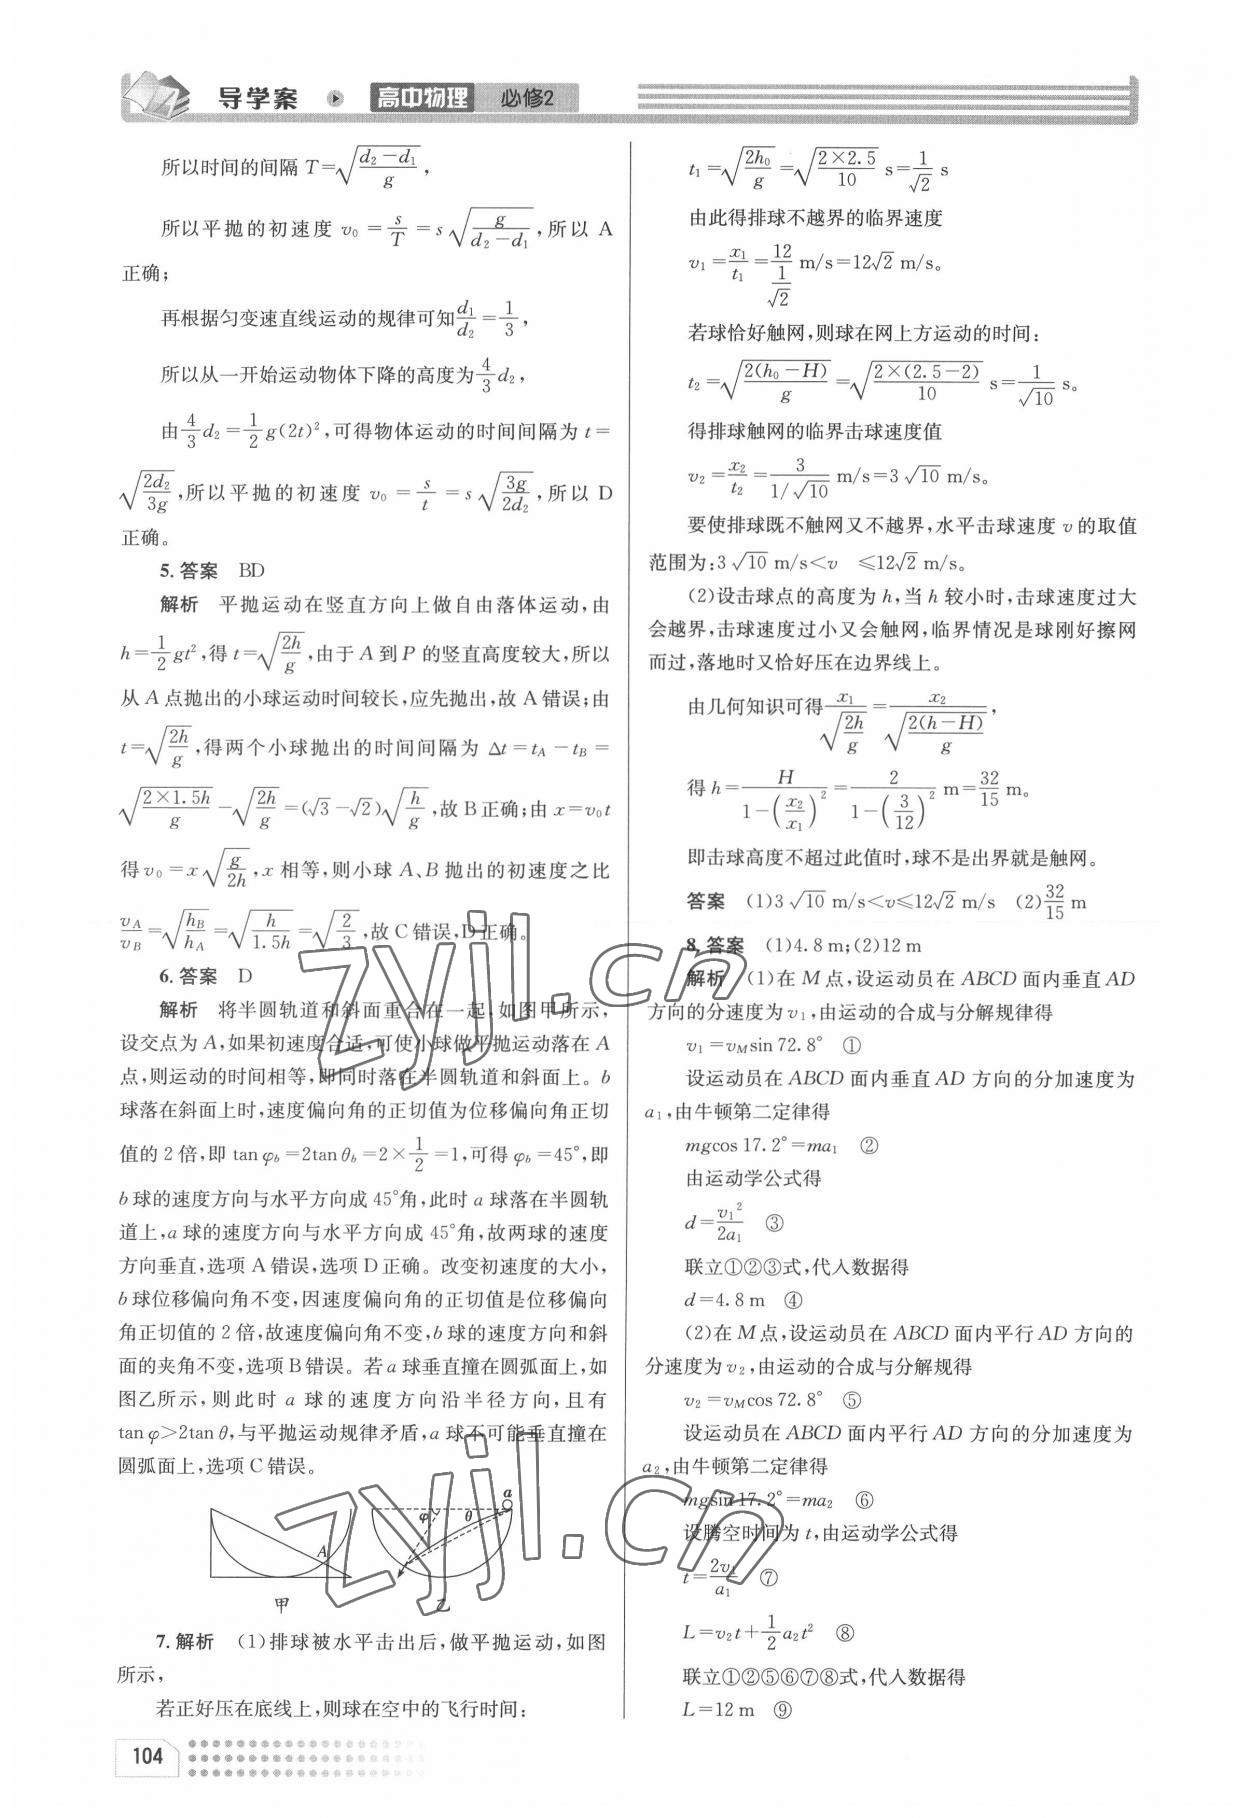 导学案 高中物理 必修2
所以时间的间隔 T=√((d₂-d₁)/g),
所以平抛的初速度 v₀=s/T=s√(g/(d₂-d₁)),所以 A
正确;
再根据匀变速直线运动的规律可知 d₁/d₂=1/3,
所以从一开始运动物体下降的高度为 4/3 d₂,
由 4/3 d₂=1/2 g(2t)²,可得物体运动的时间间隔为 t=
√(2d₂/3g),所以平抛的初速度 v₀=s/t=s√(3g/2d₂),所以 D
正确。
5. 答案 BD
解析 平抛运动在竖直方向上做自由落体运动,由
h=1/2 gt²,得 t=√(2h/g),由于 A 到 P 的竖直高度较大,所以
从 A 点抛出的小球运动时间较长,应先抛出,故 A 错误;由
t=√(2h/g),得两个小球抛出的时间间隔为 Δt=t_A-t_B=
√(2×1.5h/g)-√(2h/g)=(√3-√2)√(h/g),故 B 正确;由 x=v₀t
得 v₀=x√(g/2h),x 相等,则小球 A、B 抛出的初速度之比
v_A/v_B=√(h_B/h_A)=√(h/1.5h)=√(2/3),故 C 错误,D 正确。
6. 答案 D
解析 将半圆轨道和斜面重合在一起,如图甲所示,
设交点为 A,如果初速度合适,可使小球做平抛运动落在 A
点,则运动的时间相等,即同时落在半圆轨道和斜面上。b
球落在斜面上时,速度偏向角的正切值为位移偏向角正切
值的 2 倍,即 tan φ_b=2tan θ_b=2×1/2=1,可得 φ_b=45°,即
b 球的速度方向与水平方向成 45°角,此时 a 球落在半圆轨
道上,a 球的速度方向与水平方向成 45°角,故两球的速度
方向垂直,选项 A 错误,选项 D 正确。改变初速度的大小,
b 球位移偏向角不变,因速度偏向角的正切值是位移偏向
角正切值的 2 倍,故速度偏向角不变,b 球的速度方向和斜
面的夹角不变,选项 B 错误。若 a 球垂直撞在圆弧面上,如
图乙所示,则此时 a 球的速度方向沿半径方向,且有
tan φ>2tan θ,与平抛运动规律矛盾,a 球不可能垂直撞在
圆弧面上,选项 C 错误。
A
甲
a
φ θ
乙
7. 解析 (1)排球被水平击出后,做平抛运动,如图
所示,
若正好压在底线上,则球在空中的飞行时间:
104
t₁=√(2h₀/g)=√(2×2.5/10) s=1/√2 s
由此得排球不越界的临界速度
v₁=x₁/t₁=12/(1/√2) m/s=12√2 m/s。
若球恰好触网,则球在网上方运动的时间:
t₂=√(2(h₀-H)/g)=√(2×(2.5-2)/10) s=1/√10 s。
得排球触网的临界击球速度值
v₂=x₂/t₂=3/(1/√10) m/s=3√10 m/s。
要使排球既不触网又不越界,水平击球速度 v 的取值
范围为:3√10 m/s<v ≤12√2 m/s。
(2)设击球点的高度为 h,当 h 较小时,击球速度过大
会越界,击球速度过小又会触网,临界情况是球刚好擦网
而过,落地时又恰好压在边界线上。
由几何知识可得 x₁/√(2h/g)=x₂/√(2(h-H)/g),
得 h=H/(1-(x₂/x₁)²)=2/(1-(3/12)²) m=32/15 m。
即击球高度不超过此值时,球不是出界就是触网。
答案 (1)3√10 m/s<v≤12√2 m/s (2)32/15 m
8. 答案 (1)4.8 m;(2)12 m
解析 (1)在 M 点,设运动员在 ABCD 面内垂直 AD
方向的分速度为 v₁,由运动的合成与分解规律得
v₁=v_M sin 72.8° ①
设运动员在 ABCD 面内垂直 AD 方向的分加速度为
a₁,由牛顿第二定律得
mgcos 17.2°=ma₁ ②
由运动学公式得
d=v₁²/2a₁ ③
联立①②③式,代入数据得
d=4.8 m ④
(2)在 M 点,设运动员在 ABCD 面内平行 AD 方向的
分速度为 v₂,由运动的合成与分解规得
v₂=v_M cos 72.8° ⑤
设运动员在 ABCD 面内平行 AD 方向的分加速度为
a₂,由牛顿第二定律得
mgsin 17.2°=ma₂ ⑥
设腾空时间为 t,由运动学公式得
t=2v₁/a₁ ⑦
L=v₂t+1/2 a₂t² ⑧
联立①②⑤⑥⑦⑧式,代入数据得
L=12 m ⑨
zyjl.cn
zyjl.cn